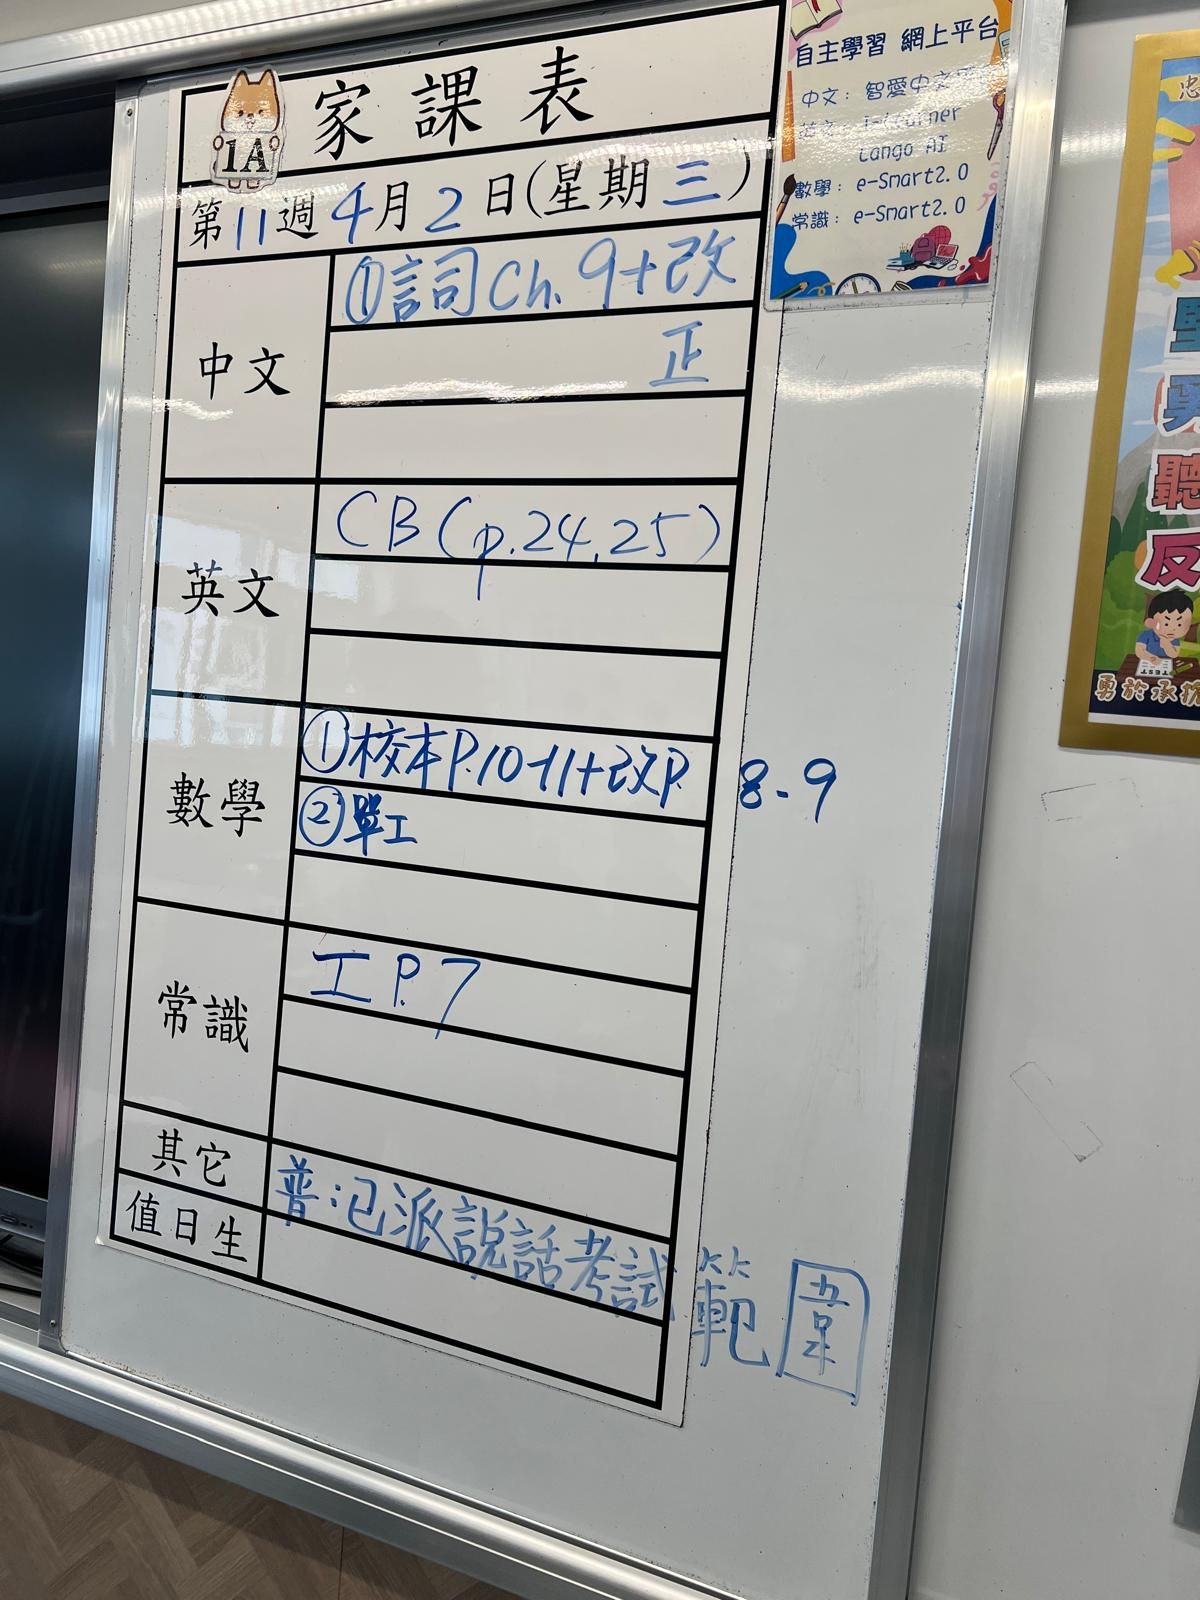 家課表
1A
第11週4月2日(星期三)
中文
①詞Ch.9+改
正
英文
CB(p.24,25)
數學
①校本P.10-11+改P.8-9
②單工
常識
工P.7
其它
普:已派說話考試範圍
值日生
自主學習 網上平台
中文: 智愛中文
英文: I-Learner
Lango AI
數學: e-Smart2.0
常識: e-Smart2.0
忠
聽
反
TEST
勇於承擔